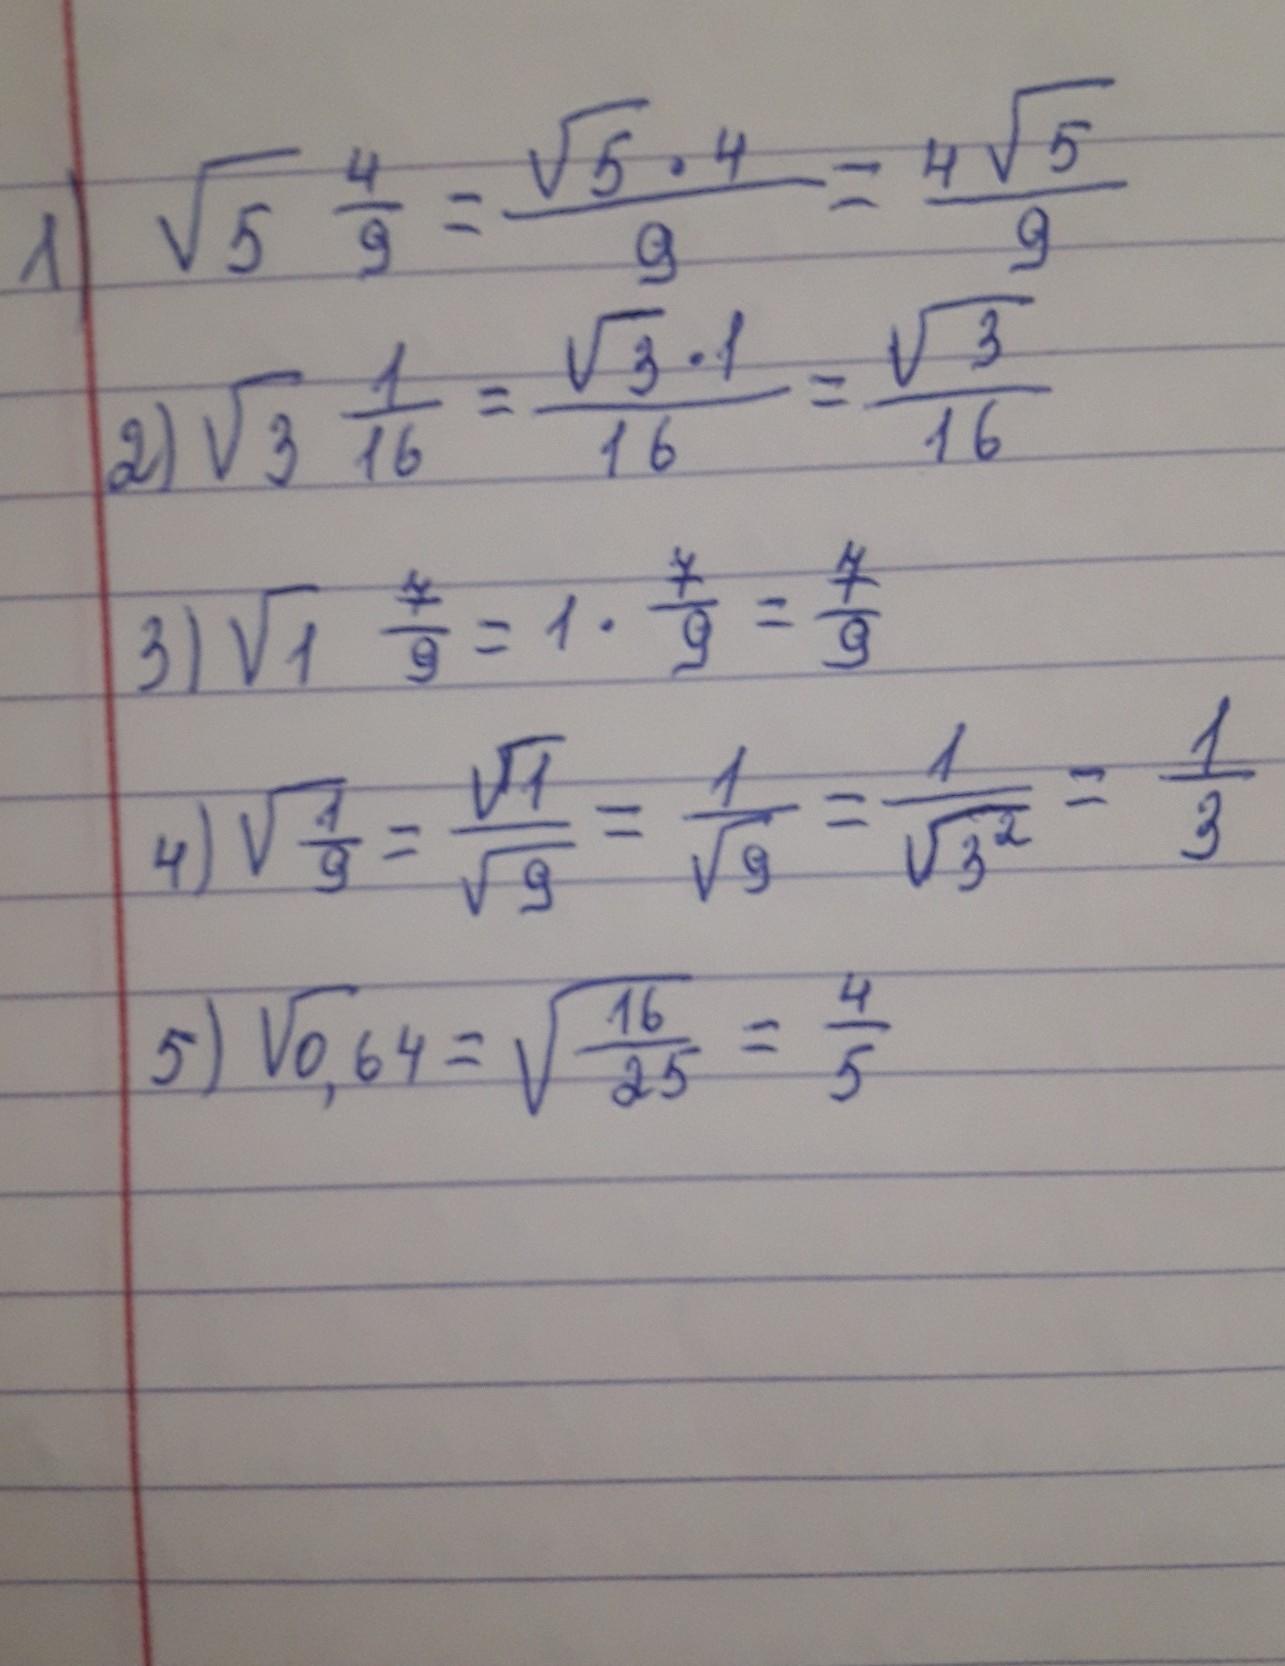 1) √5 4/9 = √5 · 4/9 = 4√5/9
2) √3 1/16 = √3 · 1/16 = √3/16
3) √1 7/9 = 1 · 7/9 = 7/9
4) √1/9 = √1/√9 = 1/√9 = 1/√3² = 1/3
5) √0,64 = √16/25 = 4/5